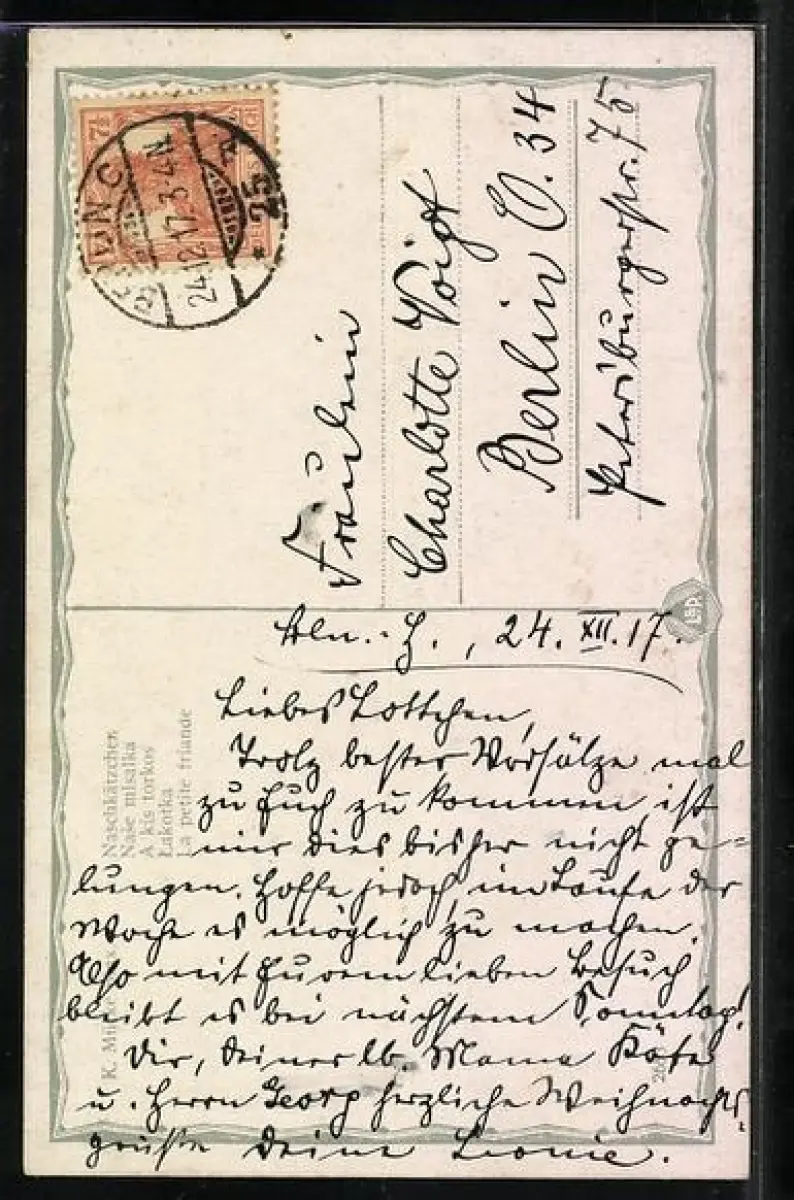 7½
24.12.17.3-4N.
25
Fräulein
Charlotte Voigt
Berlin O. 34
Petersburgerstr. 75
Naschkätzchen
Naše mlsalka
A kis torkos
Łakotka
La petite friande
L&P.
Bln.-H., 24. XII. 17.
Liebes Lottchen,
Trotz bester Vorsätze mal
zu Euch zu kommen, ist
mir dies bisher nicht ge-
lungen. Hoffe jedoch, im Laufe der
Woche es möglich zu machen.
Also mit Eurem lieben Besuch
bleibt es bei nächstem Sonntag!
Dir, Deiner lb. Mama, Käte
u. Herrn Georg herzliche Weihnachts-
grüße Deine Leonie.
K.